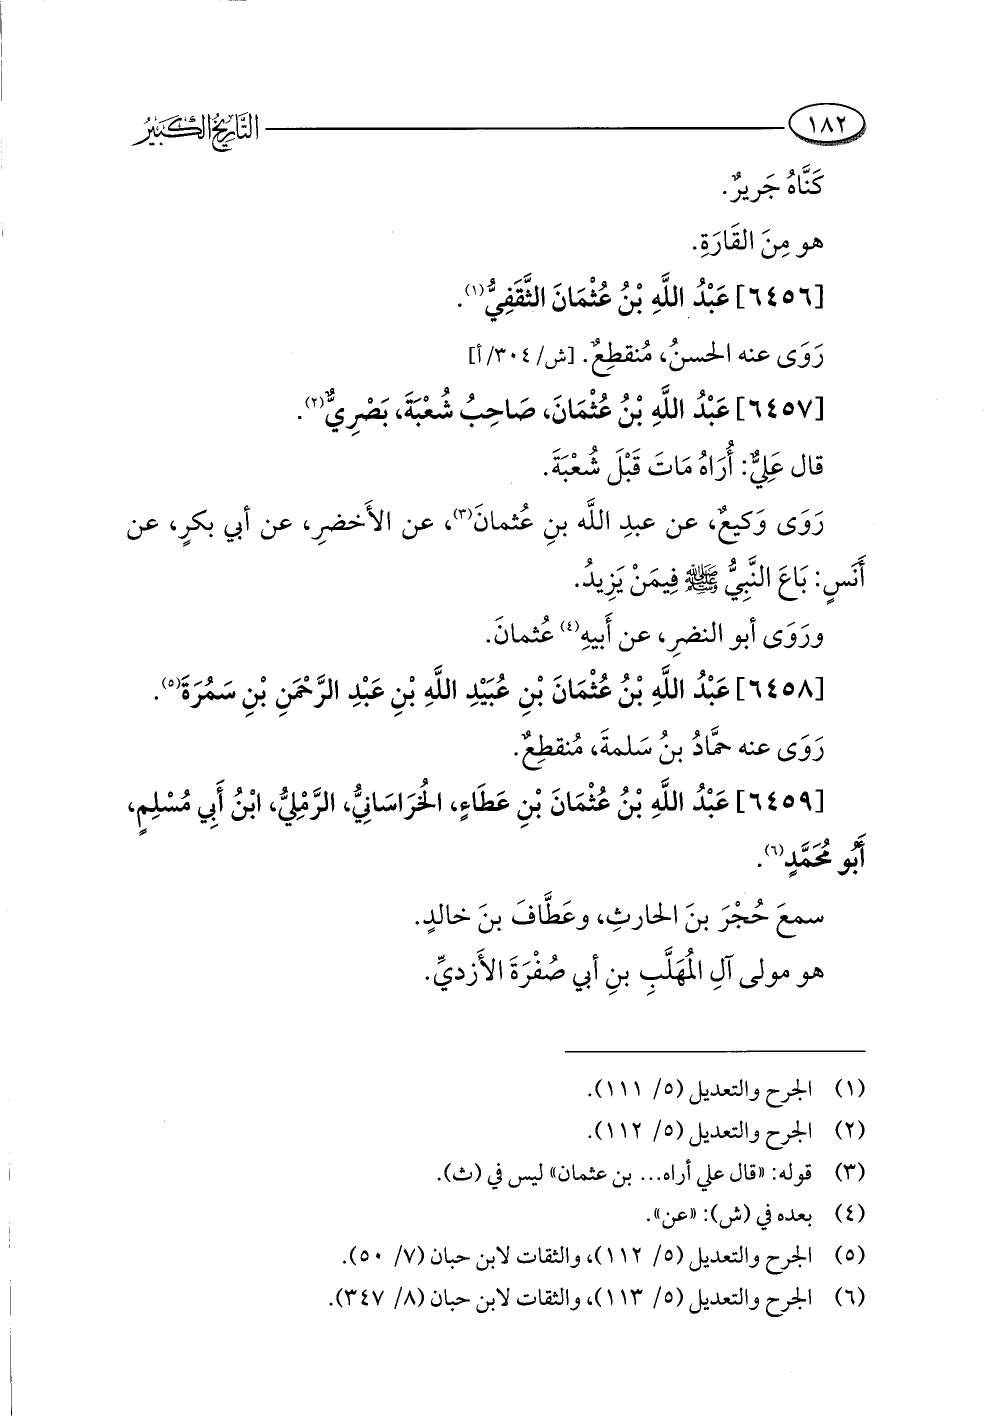 ١٨٢
التاريخ الكبير
كَنَّاهُ جَرِيرٌ.
هو مِنَ القَارَةِ.
[٦٤٥٦] عَبْدُ اللَّهِ بْنُ عُثْمَانَ الثَّقَفِيُّ(١).
رَوَى عنه الحسنُ، مُنقطِعٌ. [ش/ ٣٠٤/ أ]
[٦٤٥٧] عَبْدُ اللَّهِ بْنُ عُثْمَانَ، صَاحِبُ شُعْبَةَ، بَصْرِيٌّ(٢).
قال عَلِيٌّ: أُرَاهُ مَاتَ قَبْلَ شُعْبَةَ.
رَوَى وَكيعٌ، عن عبدِ اللَّه بنِ عُثمانَ(٣)، عن الأَخضرِ، عن أبي بكرٍ، عن
أَنَسٍ: بَاعَ النَّبِيُّ ﷺ فِيمَنْ يَزِيدُ.
ورَوَى أبو النضرِ، عن أَبيهِ(٤) عُثمانَ.
[٦٤٥٨] عَبْدُ اللَّهِ بْنُ عُثْمَانَ بْنِ عُبَيْدِ اللَّهِ بْنِ عَبْدِ الرَّحْمَنِ بْنِ سَمُرَةَ(٥).
رَوَى عنه حمَّادُ بنُ سَلمةَ، مُنقطِعٌ.
[٦٤٥٩] عَبْدُ اللَّهِ بْنُ عُثْمَانَ بْنِ عَطَاءٍ، الخُرَاسَانِيُّ، الرَّمْلِيُّ، ابْنُ أَبِي مُسْلِمٍ،
أَبُو مُحَمَّدٍ(٦).
سمعَ حُجْرَ بنَ الحارثِ، وعَطَّافَ بنَ خالدٍ.
هو مولى آلِ المُهَلَّبِ بنِ أبي صُفْرَةَ الأَزديِّ.
(١) الجرح والتعديل (٥/ ١١١).
(٢) الجرح والتعديل (٥/ ١١٢).
(٣) قوله: «قال علي أراه... بن عثمان» ليس في (ث).
(٤) بعده في (ش): «عن».
(٥) الجرح والتعديل (٥/ ١١٢)، والثقات لابن حبان (٧/ ٥٠).
(٦) الجرح والتعديل (٥/ ١١٣)، والثقات لابن حبان (٨/ ٣٤٧).